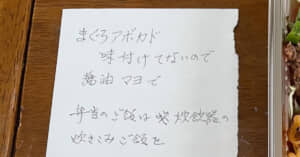 まぐろアボカド
味付けてないので
醤油マヨで
弁当のご飯は 炊飯器の
炊きこみご飯を